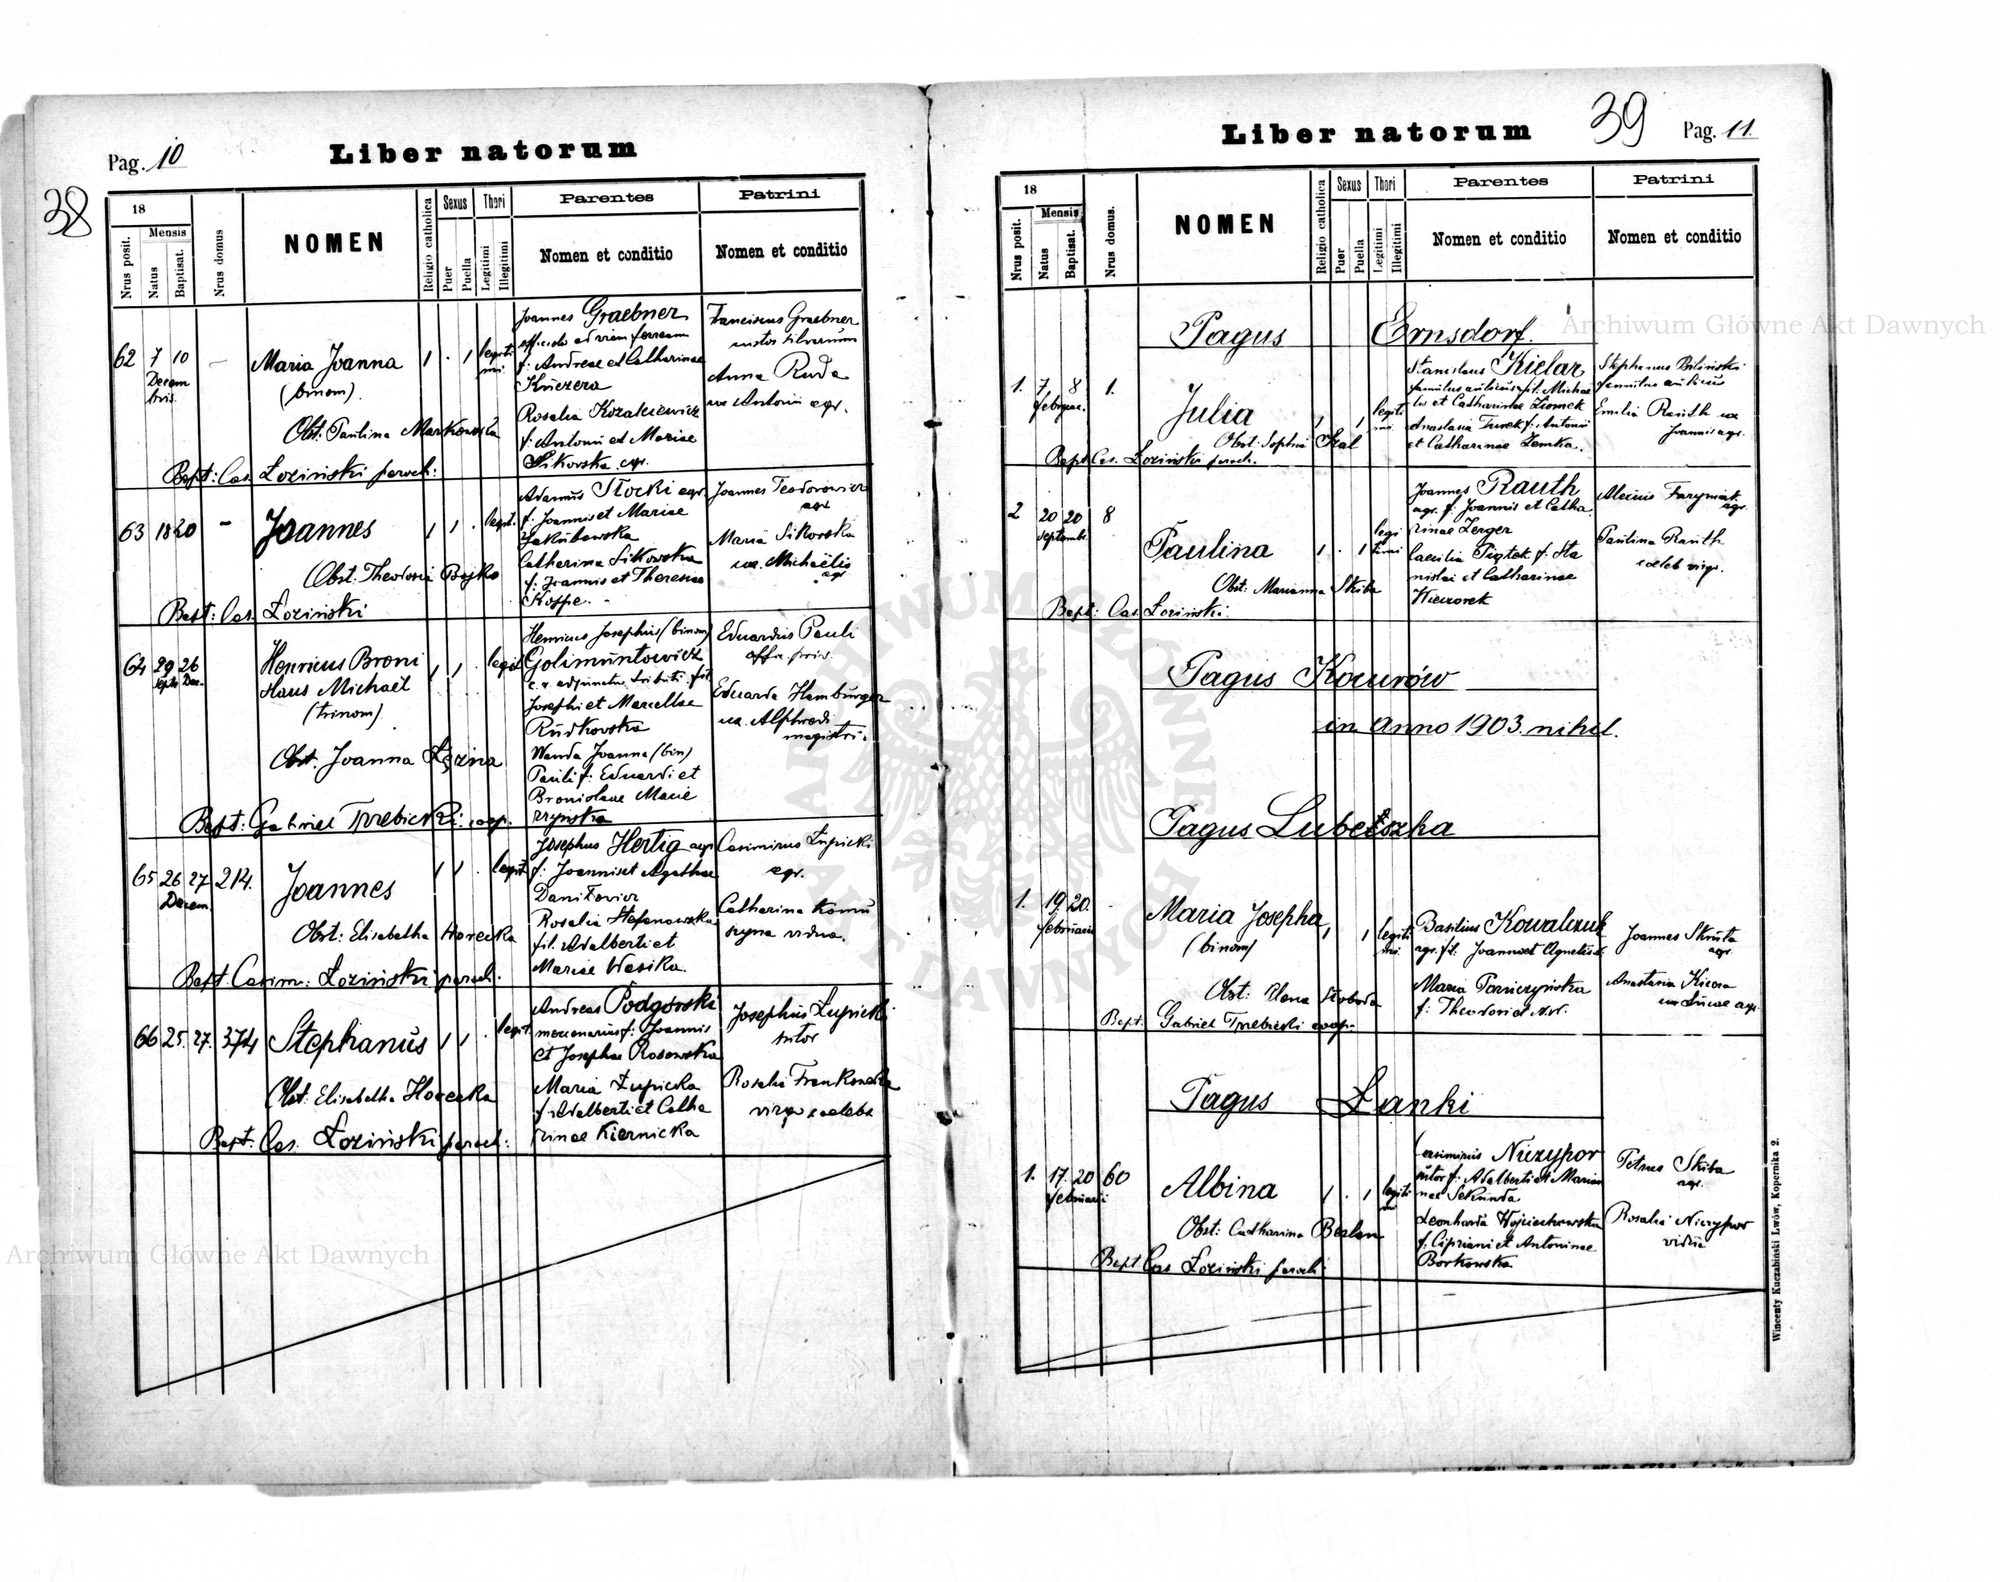 38
Pag. 10
Liber natorum
18
Mensis
Nrus posit.
Natus
Baptisat.
Nrus domus
NOMEN
Religio catholica
Sexus
Puer
Puella
Thori
Legitimi
Illegitimi
Parentes
Nomen et conditio
Patrini
Nomen et conditio
62 7 10 – Maria Joanna 1 . 1 legiti
Decem
bris
mi
(binom).
Obst: Paulina Markowska
Bapt: Cas. Łoziński paroch:
Joannes Graebner
ad viam ferream
f. Andreae et Catharinae
Knezera
Rosalia Kozakiewicz
f. Antonii et Mariae
Sikovska agr.
Franciscus Graebner
custos silvarum
Anna Ruda
ux Antonii agr.
63 18 20 – Joannes 1 1 . legit.
Obst: Theodosia Bojko
Bapt: Cas. Łoziński
Adamus Stocki agr.
f. Joannis et Mariae
Jakubowska
Catharina Sikowska
f. Joannis et Theresae
Koppe. -
Joannes Teodorowicz
agr
Maria Sikorska
ux. Michaëlis
agr
64 29 26 Henricus Broni 1 1 . legit
Septe Dec.
slaus Michaël
(trinom)
Obst. Joanna Łęzna
Bapt: Gabriel Trzebicki: coop.
Henricus Josephus (binom)
Golimuntowicz
c. r. adjunctus tributi. fil.
Josephi et Marcellae
Rudkovska
Wanda Joanna (bin)
Pauli f: Eduardi et
Bronislavae Macie
rzynska
Eduardus Pauli
offic. priv.
Eduarda Hamburger
ux. Alphredi
magistri.
65 26 27 214. Joannes 1 1 . legit.
Decem.
Obst: Elisabetha Horecka
Bapt. Casim: Łoziński paroch.
Josephus Hertig agr
f: Joannis et Agathae
Daniłovicz
Rosalia Stefanowska
fil. Adalberti et
Mariae Wasika.
Casimirus Łupicki
agr.
Catharina Komu
szyna vidua.
66 25. 27. 374 Stephanus 1 1 . legit.
Obst: Elisabetha Horecka
Bapt: Cas. Łoziński paroch:
Andreas Podgorski
mercenarius f: Joannis
et Josephae Rosowska
Maria Łupicka
f. Adalberti et Catha
rinae Kiernicka
Josephus Łupicki
sutor
Rosalia Frankowska
virgo caelebs
39
Liber natorum
Pag. 11.
18
Mensis
Nrus posit.
Natus
Baptisat.
Nrus domus.
NOMEN
Religio catholica
Sexus
Puer
Puella
Thori
Legitimi
Illegitimi
Parentes
Nomen et conditio
Patrini
Nomen et conditio
Pagus Ernsdorf.
1. 7 8 1. Julia 1 1 legiti
februar.
mi
Obst: Sophia Skal
Bapt Cas. Łoziński paroch.
Stanislaus Kielar
famulus aulicus f. Michae
lis et Catharinae Ziomek
Anastasia Turek f. Antonii
et Catharinae Zemka.
Stephanus Bilinski
famulus aulicus
Emilia Rauth ux
Joannis agr.
2 20 20 8 Paulina 1 . 1 legi
Septembr.
timi
Obst: Marianna Skiba
Bapt: Cas. Łoziński.
Joannes Rauth
agr. f. Joannis et Catha
rinae Zerger
Caecilia Piątek f. Sta
nislai et Catharinae
Wieczorek
Alexius Faryniak
agr.
Paulina Rauth
caeleb virgo.
Pagus Kocurów
in Anno 1903. nihil.
Pagus Lubeszka
1. 19. 20. - Maria Josepha 1 1 legiti
februarii
mi.
(binom)
Obst: Elena Słoboda
Bapt. Gabriel Trzebicki coop.
Basilius Kowalczuk
agr. f. Joannis et Agnetis
Maria
f: Theodori et N.N.
Joannes Skruta
agr.
Anastasia
ux Lucae agr.
Pagus Łanki
1. 17. 20 60 Albina 1 . 1 legiti
februarii
mi
Obst: Catharina Beslan
Bapt Cas Łoziński paroch
Casimirus Niczypor
sutor f: Adalberti et Marian
nae Sekunda
Leonharda Wojciechowska
f. Cipriani et Antoninae
Borkowska
Petrus Skiba
agr.
Rosalia Niczypor
vidua
Wincenty Kuczabiński Lwów, Kopernika 2.
Archiwum Główne Akt Dawnych
Archiwum Główne Akt Dawnych
ARCHIWUM GŁÓWNE AKT DAWNYCH